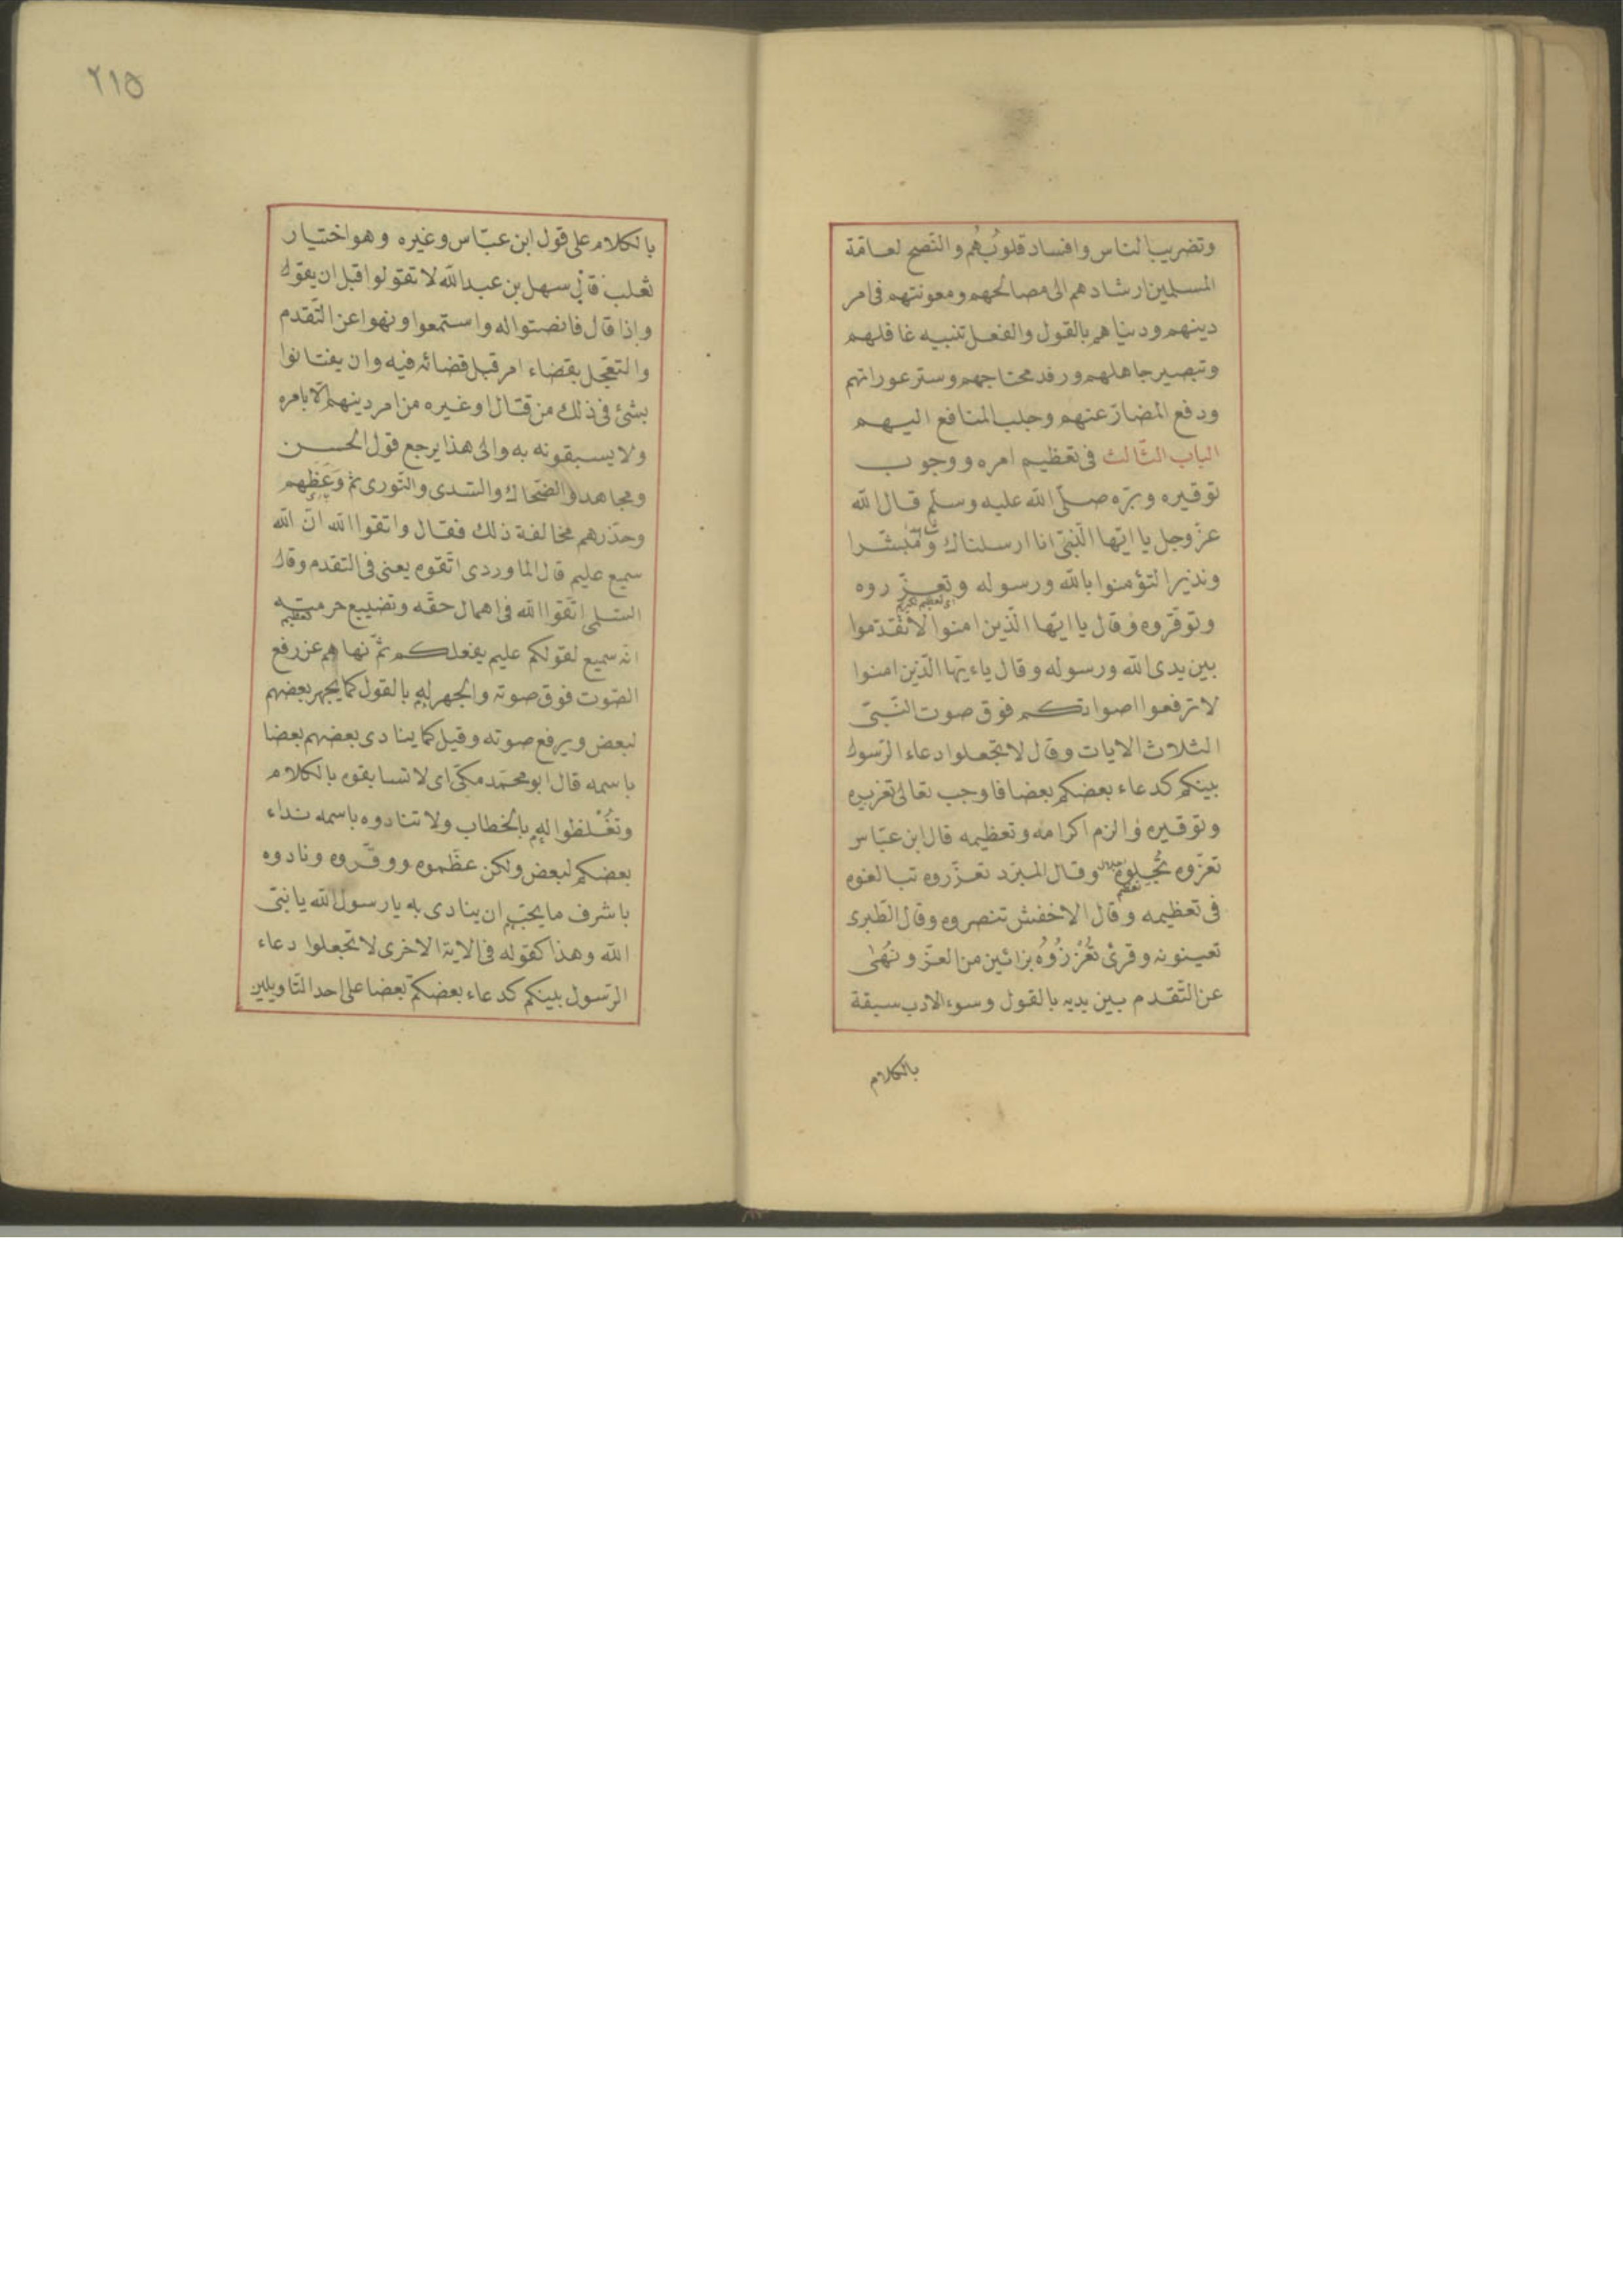 وتضريب الناس وافساد قلوبُهُم والنّصح لعامّة
المسلمين ارشادهم الى مصالحهم ومعونتهم فى امر
دينهم ودنياهم بالقول والفعل تنبيه غافلهم
وتبصير جاهلهم ورفد محتاجهم وستر عوراتهم
ودفع المضارّ عنهم وجلب المنافع اليهم
الباب الثّالث فى تعظيم امره ووجوب
توقيره وبرّه صلّى الله عليه وسلّم قال الله
عزّ وجل يا ايّها النّبىّ انا ارسلناك ومبشّرا
ونذيرا لتؤمنوا بالله ورسوله وتعزّروه
وتوقّروه وقال يا ايّها الّذين امنوا لا تُقدّموا
بين يدى الله ورسوله وقال ياءيّها الّذين امنوا
لا ترفعوا اصواتكم فوق صوت النّبىّ
الثلاث الايات وقال لا تجعلوا دعاء الرّسول
بينكم كدعاء بعضكم بعضا فاوجب تعالى تعزيره
وتوقيره والزم اكرامه وتعظيمه قال ابن عبّاس
تعزّوه تُجِلوه وقال المبرّد تعزّروه تبالغوه
فى تعظيمه وقال الاخفش تنصروه وقال الطّبرى
تعينونه وقرئ تُعَزّزُوُه بزائين من العزّ ونُهٰى
عن التّقدم بين يديه بالقول وسوء الادب سبقة
بالكلام
٢١٥
بالكلام على قول ابن عبّاس وغيره وهو اختيار
ثعلب قال سهل بن عبد الله لا تقولوا قبل ان يقول
واذا قال فانصتوا له واستمعوا ونهوا عن التّقدم
والتعجّل بقضاء امر قبل قضائه فيه وان يفتاتوا
بشئ فى ذلك من قتال اوغيره من امر دينهم الّا بامره
ولا يسبقونه به والى هذا يرجع قول الحسن
ومجاهد والضّحاك والسّدى والثّورى ثمّ وَعَظهم
وحذّرهم مخالفة ذلك فقال واتقوا الله انّ الله
سميع عليم قال الماوردى اتّقوه يعنى فى التقدم وقال
السّلمى اتّقوا الله فى اهمال حقّه وتضييع حرمته
انّه سميع لقولكم عليم بفعلكم ثمّ نهاهم عن رفع
الصّوت فوق صوته والجهر له بالقول كما يجهر بعضهم
لبعض ويرفع صوته وقيل كما ينادى بعضهم بعضا
باسمه قال ابو محمّد مكّى اى لا تسابقوه بالكلام
وتُغْلظوا له بالخطاب ولا تنادوه باسمه نداء
بعضكم لبعض ولكن عظّموه ووقّروه ونادوه
باشرف ما يحبّ ان ينادى به يا رسول الله يا نبىّ
الله وهذا كقوله فى الاية الاخرى لا تجعلوا دعاء
الرّسول بينكم كدعاء بعضكم بعضا على احد التّاويلين